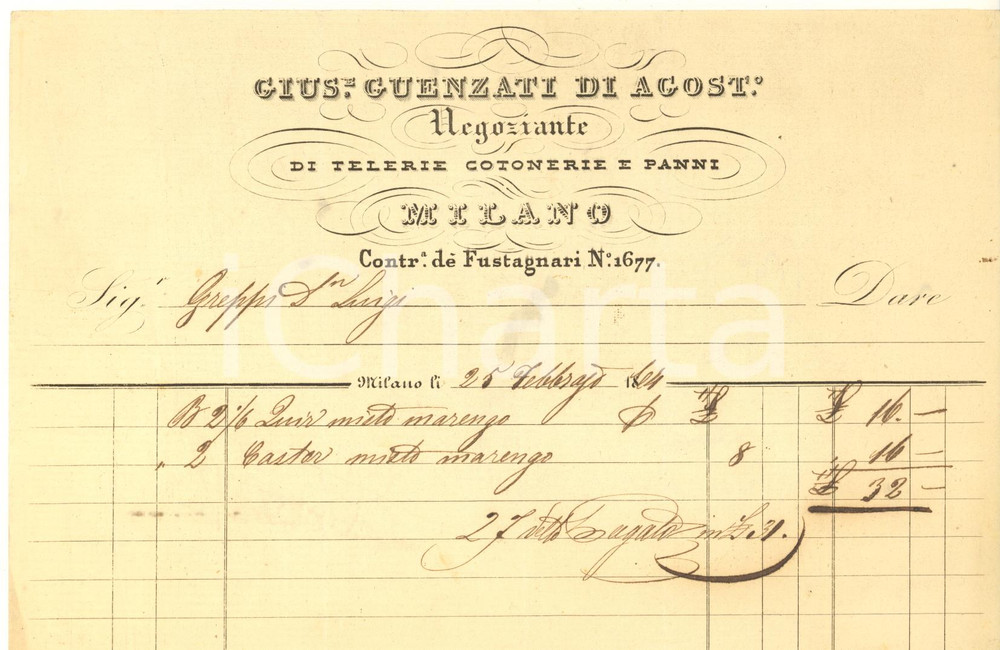 GIUS.E GUENZATI DI AGOST.O
Negoziante
DI TELERIE COTONERIE E PANNI
MILANO
Contr.a dè Fustagnari N.o 1677.
Sig.r Greppi D.n Luigi Dare
Milano li 25 Febbrajo 1864
B 2 1/6 misto marengo £ £ 16. —
" 2 Castor misto marengo 8 " 16 —
£ 32 —
27 detto Pagato in £ 31.
iCharta